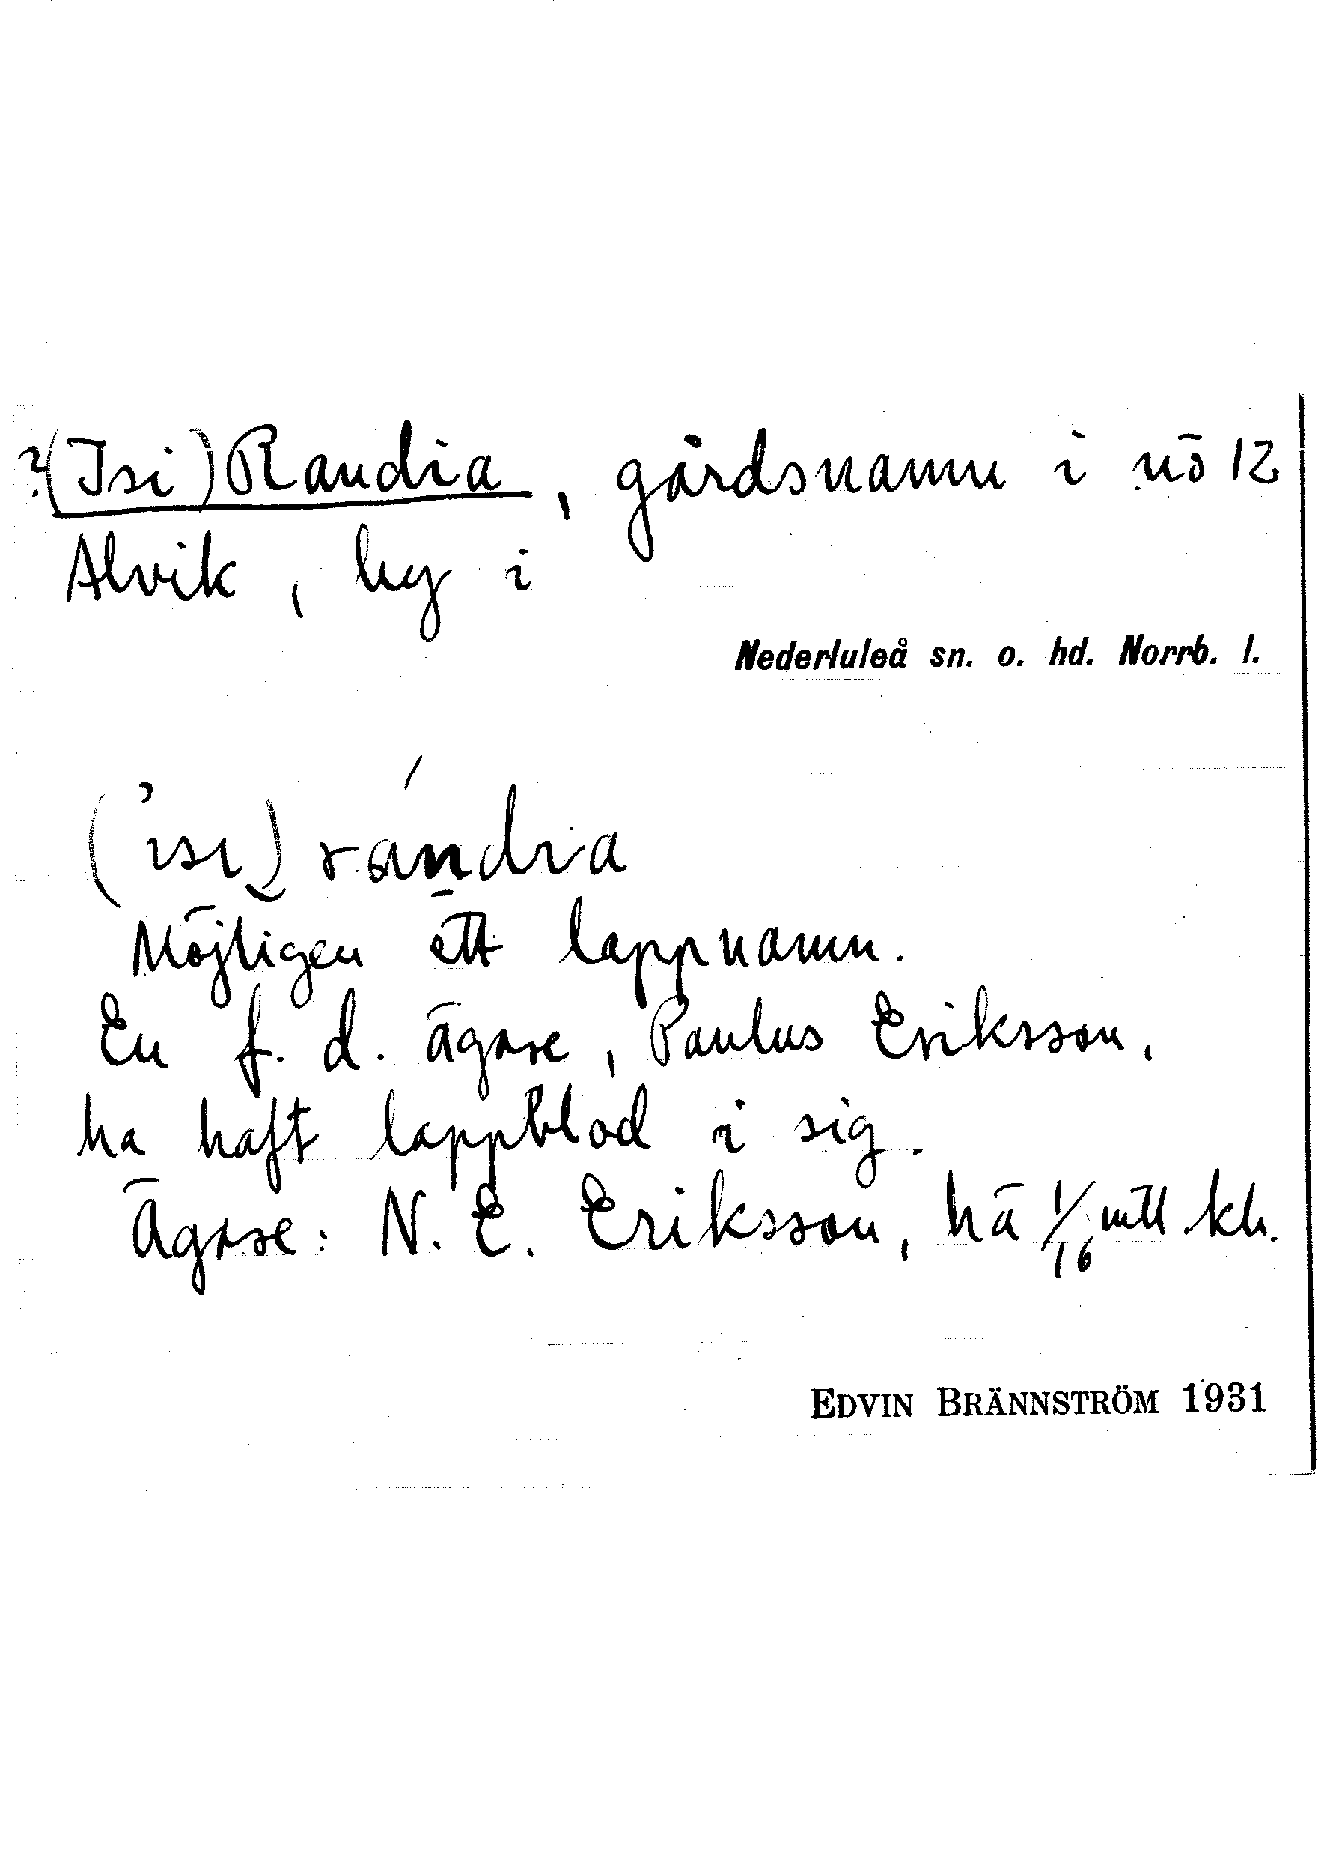 ?(Isi)Randia, gårdsnamn i nö 12
Alvik, by i
Nederluleå sn. o. hd. Norrb. l.
('ısı) rándıa
Möjligen ett lappnamn.
En f. d. ägare, Paulus Eriksson,
ha haft lappblod i sig.
Ägare: N. E. Eriksson, hä 1/16 mtl kh.
EDVIN BRÄNNSTRÖM 1931